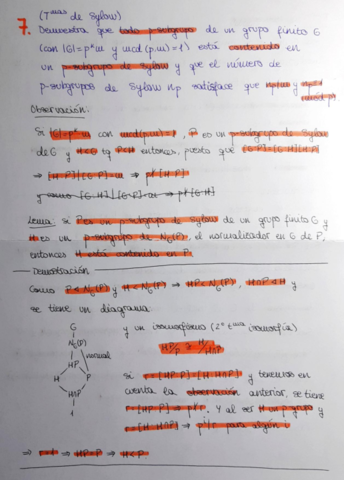 (Tmas de Sylow)
7. Demuestra que todo p-subgrupo de un grupo finito G
(con |G|=pᵏm y mcd(p,m)=1) está contenido en
un p-subgrupo de Sylow y que el número de
p-subgrupos de Sylow np satisface que np|m y
Observación:
Si |G|=pᵏm con mcd(p,m)=1, P es un p-subgrupo de Sylow
de G y H<G tq P<H entonces, puesto que [G:P]=[G:H][H:P]
⇒ [H:P]|[G:P]=m ⇒ p∤[H:P]
y como [G:H]|[G:P]=m ⇒ p∤[G:H]
Lema: si P es un p-subgrupo de Sylow de un grupo finito G y
H es un p-subgrupo de NG(P), el normalizador en G de P,
entonces H está contenido en P.
Demostración
Como P◁NG(P) y H<NG(P) ⇒ HP<NG(P), H∩P◁H y
se tiene un diagrama
G
NG(P)
normal
HP
H P
H∩P
1
y un isomorfismo (2º tma isomorfía)
HP/P ≅ H/H∩P
Si r=[HP:P]=[H:H∩P] y tenemos en
cuenta la observación anterior, se tiene
r=[HP:P] ⇒ p∤r. Y al ser H un p-grupo y
r=[H:H∩P] ⇒ para algún i
⇒ r=1 ⇒ HP=P ⇒ H<P